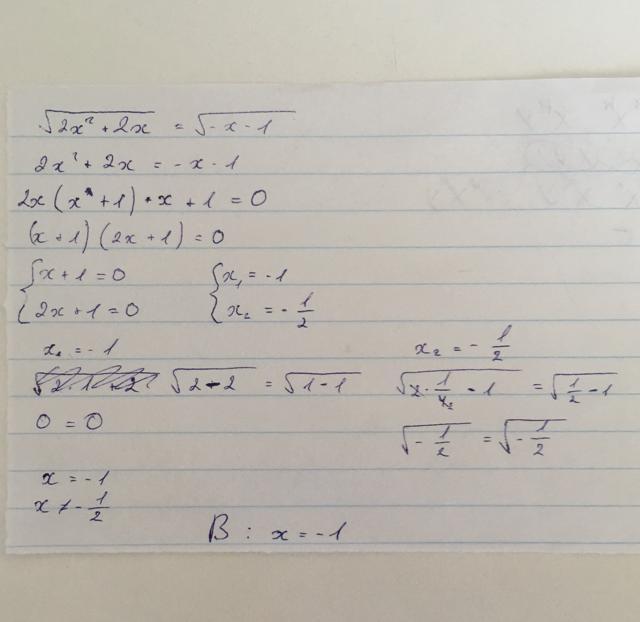 √(2x² + 2x) = √(-x - 1)
2x² + 2x = -x - 1
2x(x + 1) + x + 1 = 0
(x + 1)(2x + 1) = 0
{x + 1 = 0 {x₁ = -1
{2x + 1 = 0 {x₂ = -1/2
x₁ = -1 x₂ = -1/2
√(2-2) = √(1-1) √(2·1/4₂ - 1) = √(1/2 - 1)
0 = 0 √(-1/2) = √(-1/2)
x = -1
x ≠ -1/2
B : x = -1